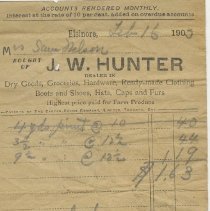 ACCOUNTS RENDERED MONTHLY.
Interest at the rate of 10 per cent. added on overdue accounts
Elsinore, Feb 16 190
Mrs Sam Nelson
BOUGHT OF
J. W. HUNTER
DEALER IN
Dry Goods, Groceries, Hardware, Ready-made Clothing
Boots and Shoes, Hats, Caps and Furs
Highest price paid for Farm Produce
4 yds print @ 10 40
3½ " @ 12½ 44
9½ @ 12½ 1 19